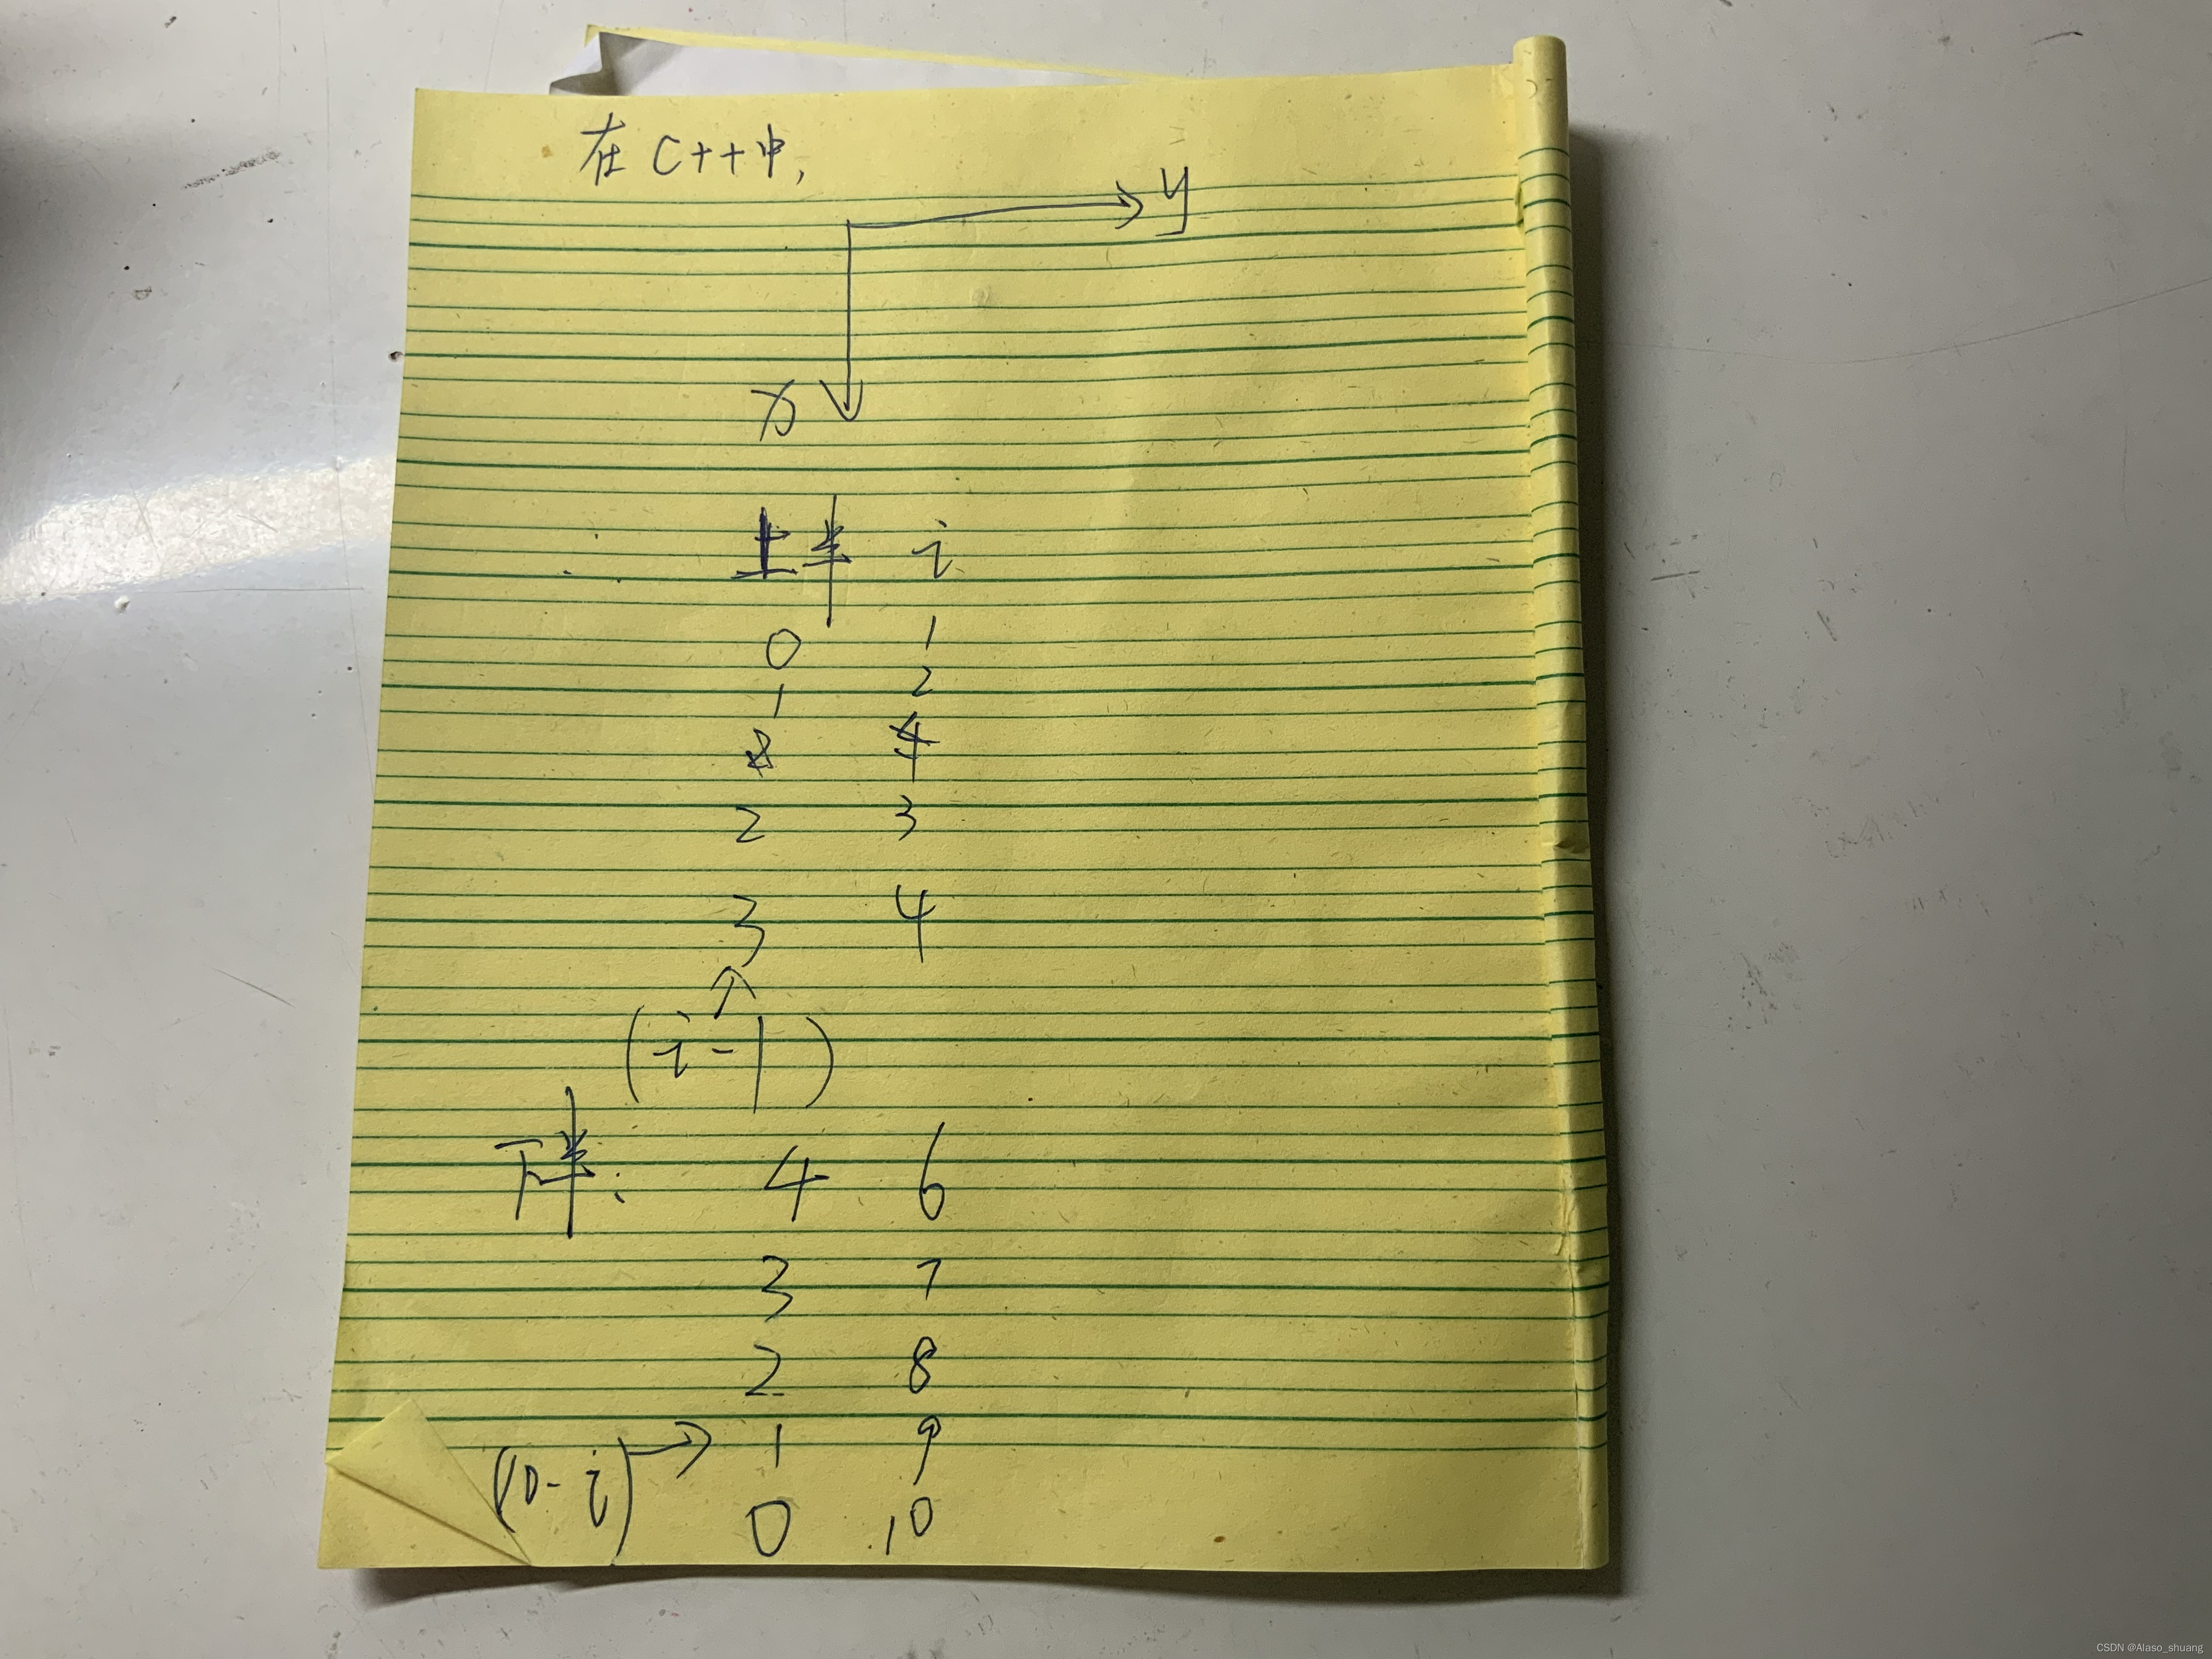 在 C++中,
y
x
上半 i
0 1
1 2
4
2 3
3 4
(i-1)
下半: 4 6
3 7
2 8
1 9
(10-i)
0 10
CSDN @Alaso_shuang